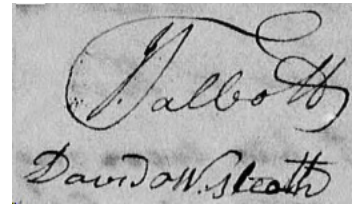 Talbott
David W. Sleath